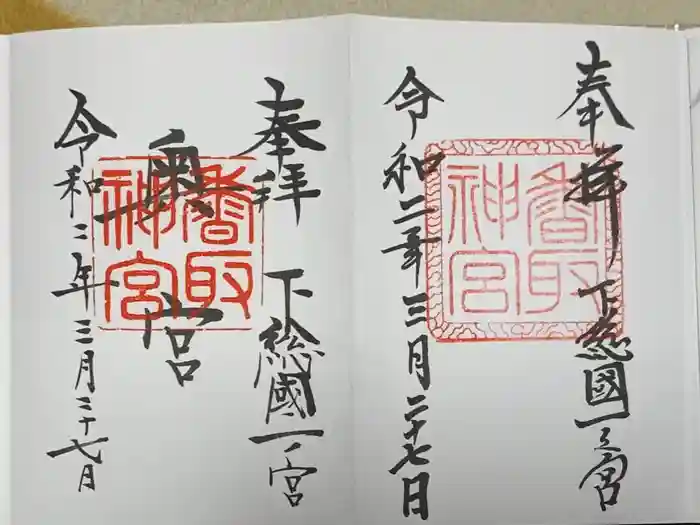 奉拝
下総國一之宮
香取神宮
令和二年三月二十七日
奉拝
下総國一ノ宮
奥宮
香取神宮
令和二年三月二十七日